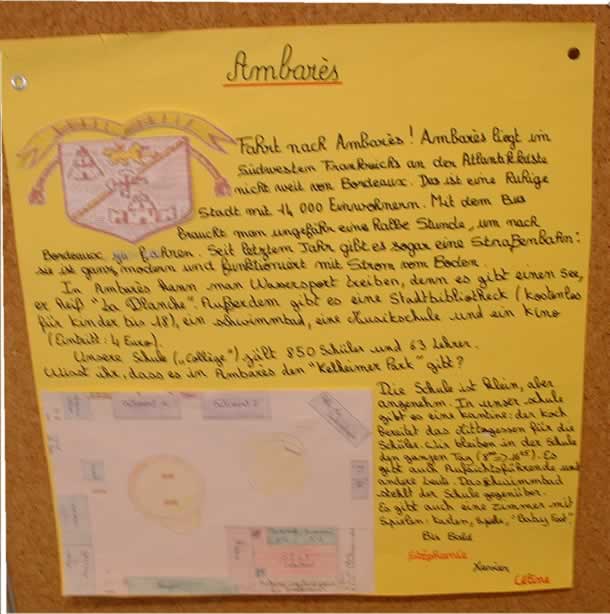 Ambarès
Fahrt nach Ambarès! Ambarès liegt im
Südwesten Frankreichs an der Atlantikküste
nicht weit von Bordeaux. Das ist eine Ruhige
Stadt mit 14 000 Einwohnern. Mit dem Bus
braucht man ungefähr eine halbe Stunde, um nach
Bordeaux zu fahren. Seit letztem Jahr gibt es sogar eine Straßenbahn:
sie ist ganz modern und funktioniert mit Strom vom Boden.
In Ambarès kann man Wassersport treiben, denn es gibt einen See,
er heiß "La Blanche". Außerdem gibt es eine Stadtbibliotheck (kostenlos
für kinder bis 18), ein schwimmbad, eine Musikschule und ein Kino
(Eintritt: 4 Euro).
Unsere Schule („Collège") zält 850 Schüler und 63 Lehrer.
Wisst ihr, dass es in Ambarès den "Kelheimer Park" gibt?
Die Schule ist klein, aber
angenehm. In unser schule
gibt es eine kantine: der koch
bereitet das Mittagessen für die
Schüler. Wir bleiben in der Schule
den ganzen Tag. Es
gibt auch Aufsichtsführende und
andere leute. Das schwimmbad
steht der Schule gegenüber.
Es gibt auch eine Zimmer mit
Spielen: karten, spiele, "Baby foot".
Bis Bald
Stéphanie
Xavier
Céline